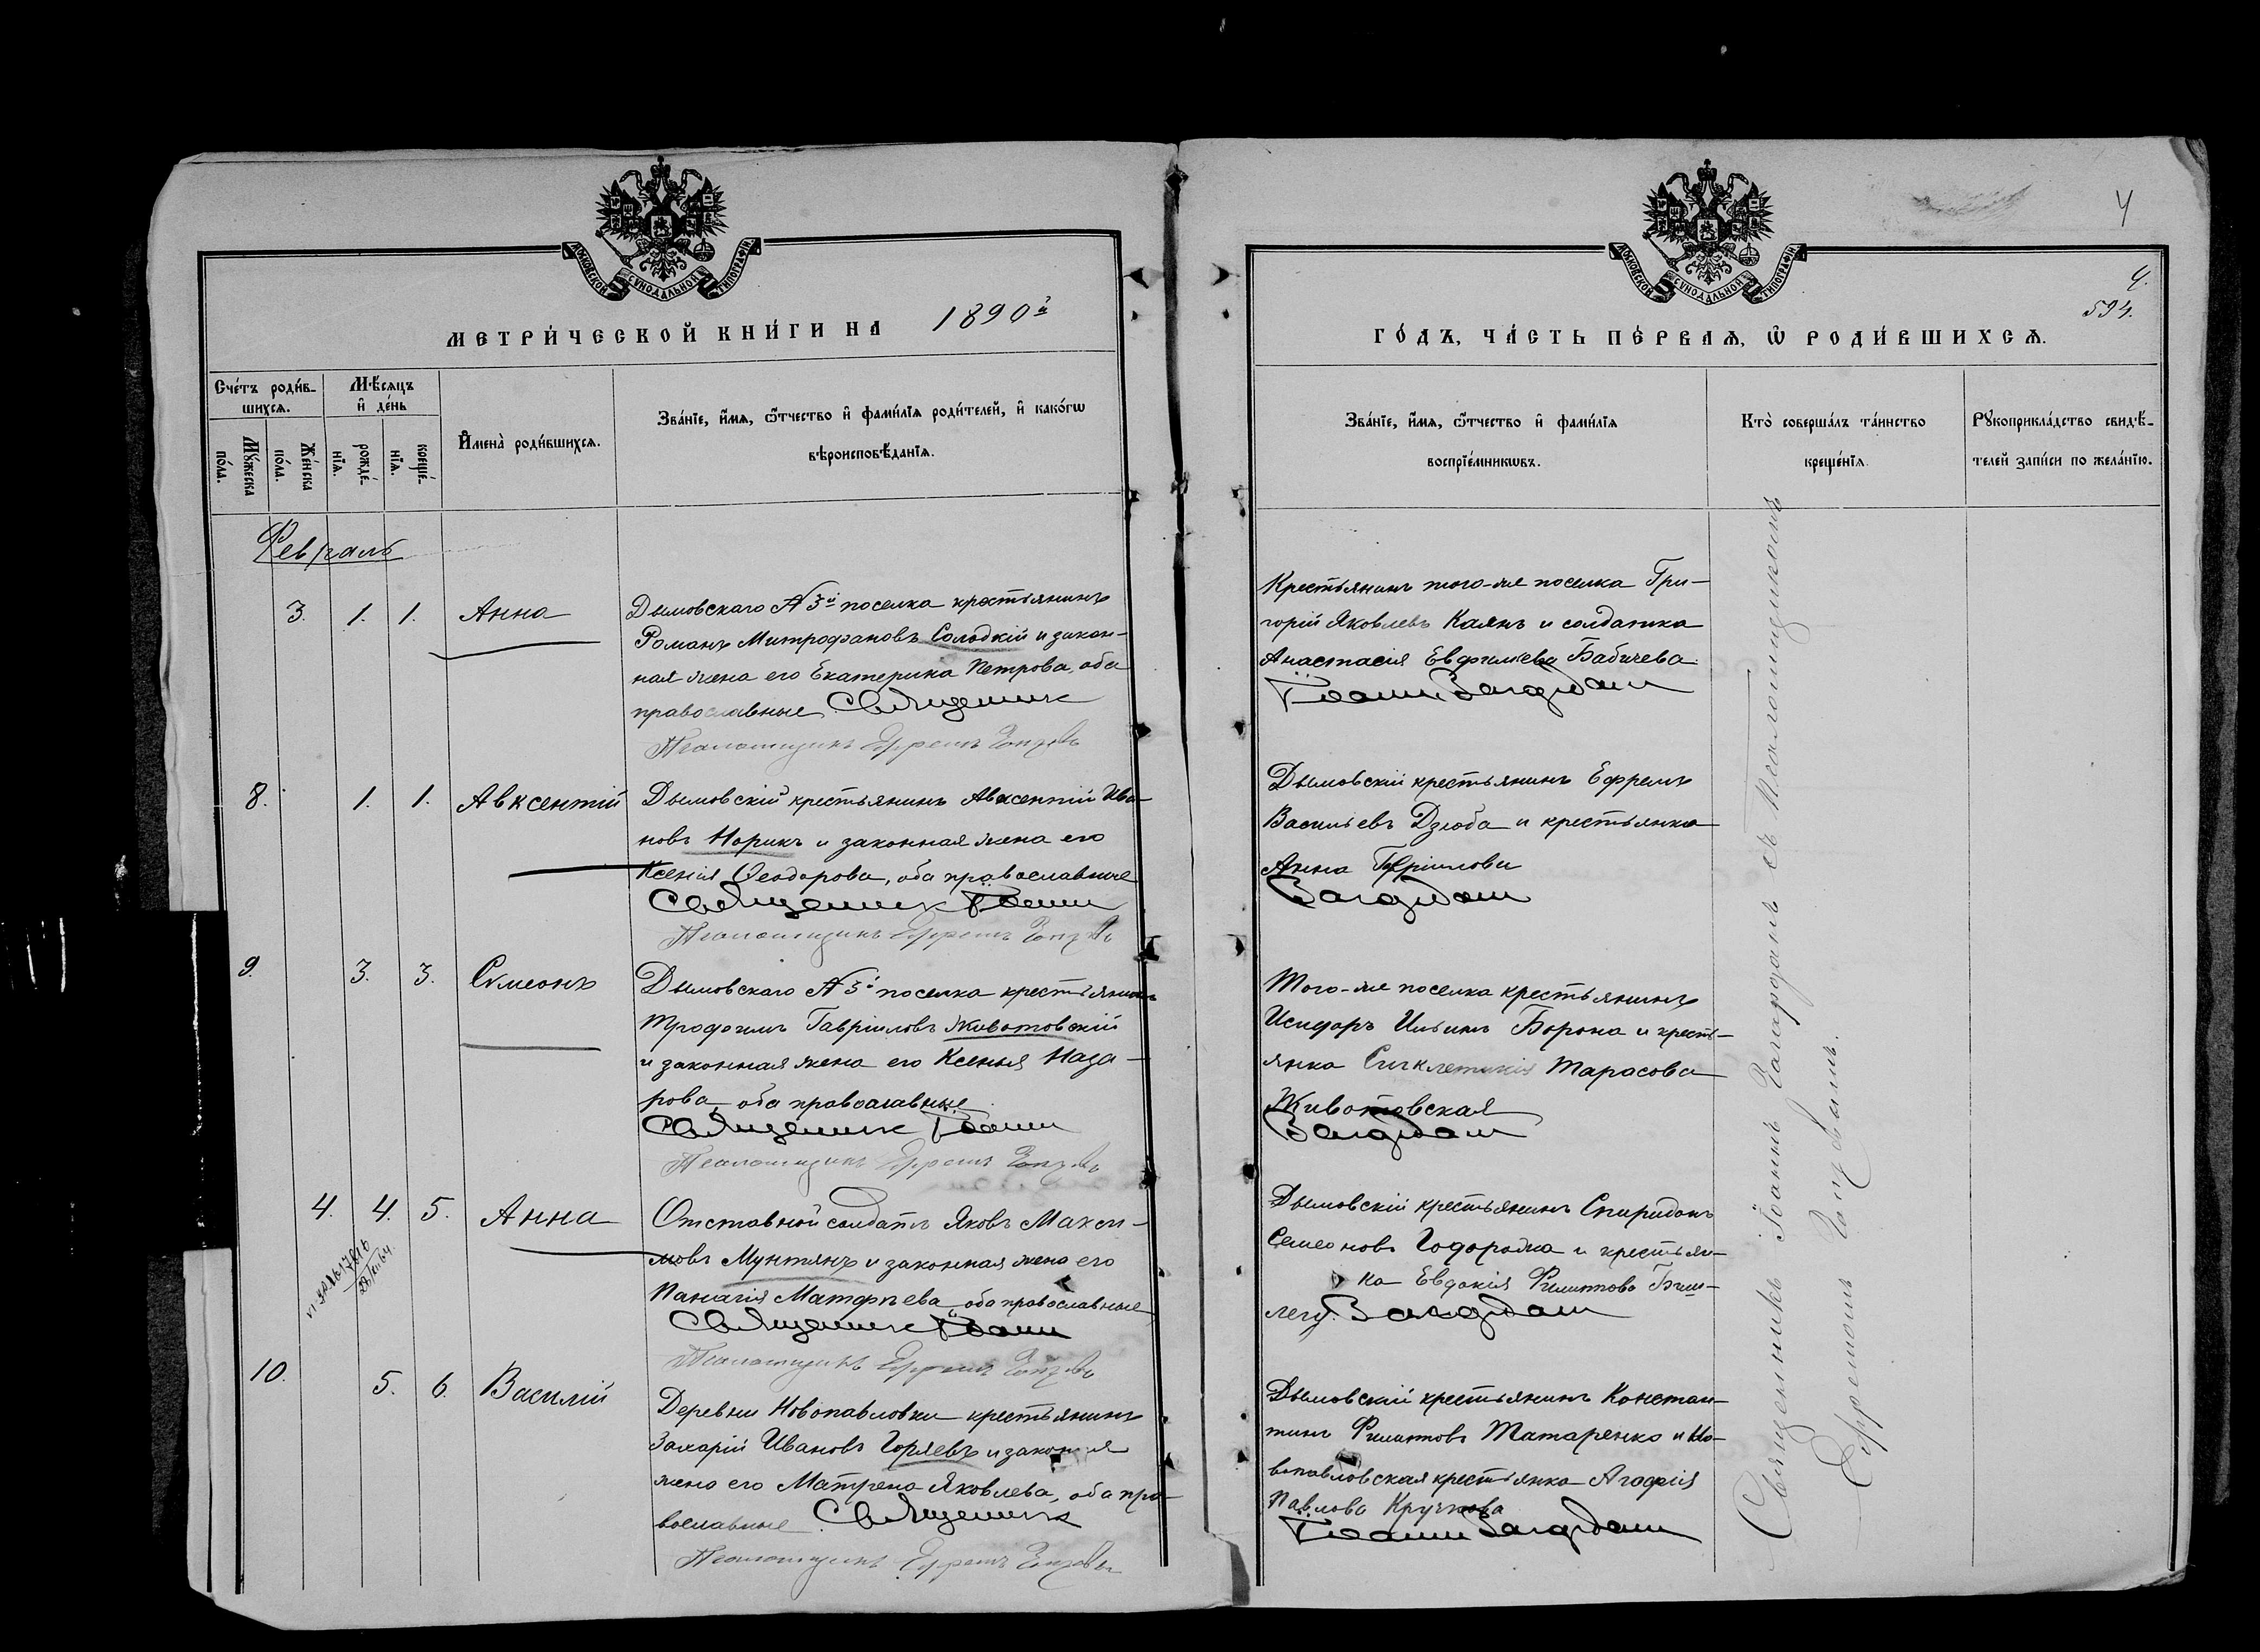 МОСКОВСКОЙ СУНОДАЛЬНОЙ ТИПОГРАФІИ
МЕТРИ́ЧЕСКОЙ КНИ́ГИ НА 1890й
Сче́тъ роди́в-
шихсѧ.
Мѣ́сѧцъ
и҆ де́нь
Мꙋ́жеска
по́ла.
Же́нска
по́ла.
рожде́-
нїѧ.
креще́-
нїѧ.
И҆мена̀ роди́вшихсѧ.
Зва́нїе, и҆́мѧ, ѻ҆́тчество и҆ фами́лїѧ роди́телей, и҆ како́гѡ
вѣроисповѣ́данїѧ.
Февраль
3. 1. 1. Анна
Дымовскаго №3й поселка крестьянинъ
Романъ Митрофановъ Солодкій и закон-
ная жена его Екатерина Петрова, оба
православные Священник
Псаломщикъ Ефремъ
8. 1. 1. Авксентій
Дымовскій крестьянинъ Авксентій Ива-
новъ Норикъ и законная жена его
Ксенія Ѳеодорова, оба православные
Священник Іоанн
Псаломщикъ Ефремъ
9. 3. 3. Симеонъ
Дымовскаго №3й поселка крестьянинъ
Трофимъ Гавріиловъ Животовскій
и законная жена его Ксенья Наза-
рова, оба православные
Священник Іоанн
Псаломщикъ Ефремъ
4. 4. 5. Анна
Отставной солдатъ Яковъ Макси-
мовъ Мунтянъ и законная жена его
Панагія Матфѣева, оба православные
Священник Іоанн
Псаломщикъ Ефремъ
10. 5. 6. Василій
Деревни Новопавловки крестьянинъ
Захарій Ивановъ Горяевъ и законная
жена его Матрена Яковлева, оба пра-
вославные Священник
Псаломщикъ Ефремъ
4
МОСКОВСКОЙ СУНОДАЛЬНОЙ ТИПОГРАФІИ
4.
594.
ГО́ДЪ, ЧА́СТЬ ПЕ́РВАѦ, Ѡ҆ РОДИ́ВШИХСѦ.
Зва́нїе, и҆́мѧ, ѻ҆́тчество и҆ фами́лїѧ
воспрїе́мникѡвъ.
Кто̀ соверша́лъ та́инство
креще́нїѧ.
Рꙋкоприкла́дство свидѣ́-
телей за́писи по жела́нїю.
Крестьянинъ того-же поселка Гри-
горій Яковлевъ Каянъ и солдатка
Анастасія Евфимієва Бабичева
Іоанн Вагардан
Дымовскій крестьянинъ Ефремъ
Васильевъ Дзюба и крестьянка
Анна Гавріилова
Вагардан
Того-же поселка крестьянинъ
Исидоръ Ильинъ Борона и кресть-
янка Синклетикія Тарасова
Животовская
Вагардан
Дымовскій крестьянинъ Спиридонъ
Семеновъ Годорожа и крестьян-
ка Евдокія Филиппова
Вагардан
Дымовскій крестьянинъ Констан-
тинъ Филипповъ Татаренко и Но-
вопавловская крестьянка Агафія
Павлова Кручкова
Іоанн Вагардан
Священникъ Іоаннъ Вагарданъ съ Псаломщикомъ
Ефремомъ